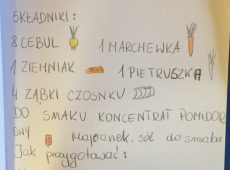 SKŁADNIKI:
8 CEBUL 1 MARCHEWKA
1 ZIEMNIAK 1 PIETRUSZKA
4 ZĄBKI CZOSNKU
DO SMAKU KONCENTRAT POMIDOR
OWY majeranek, sól do smaku
Jak przygotować: